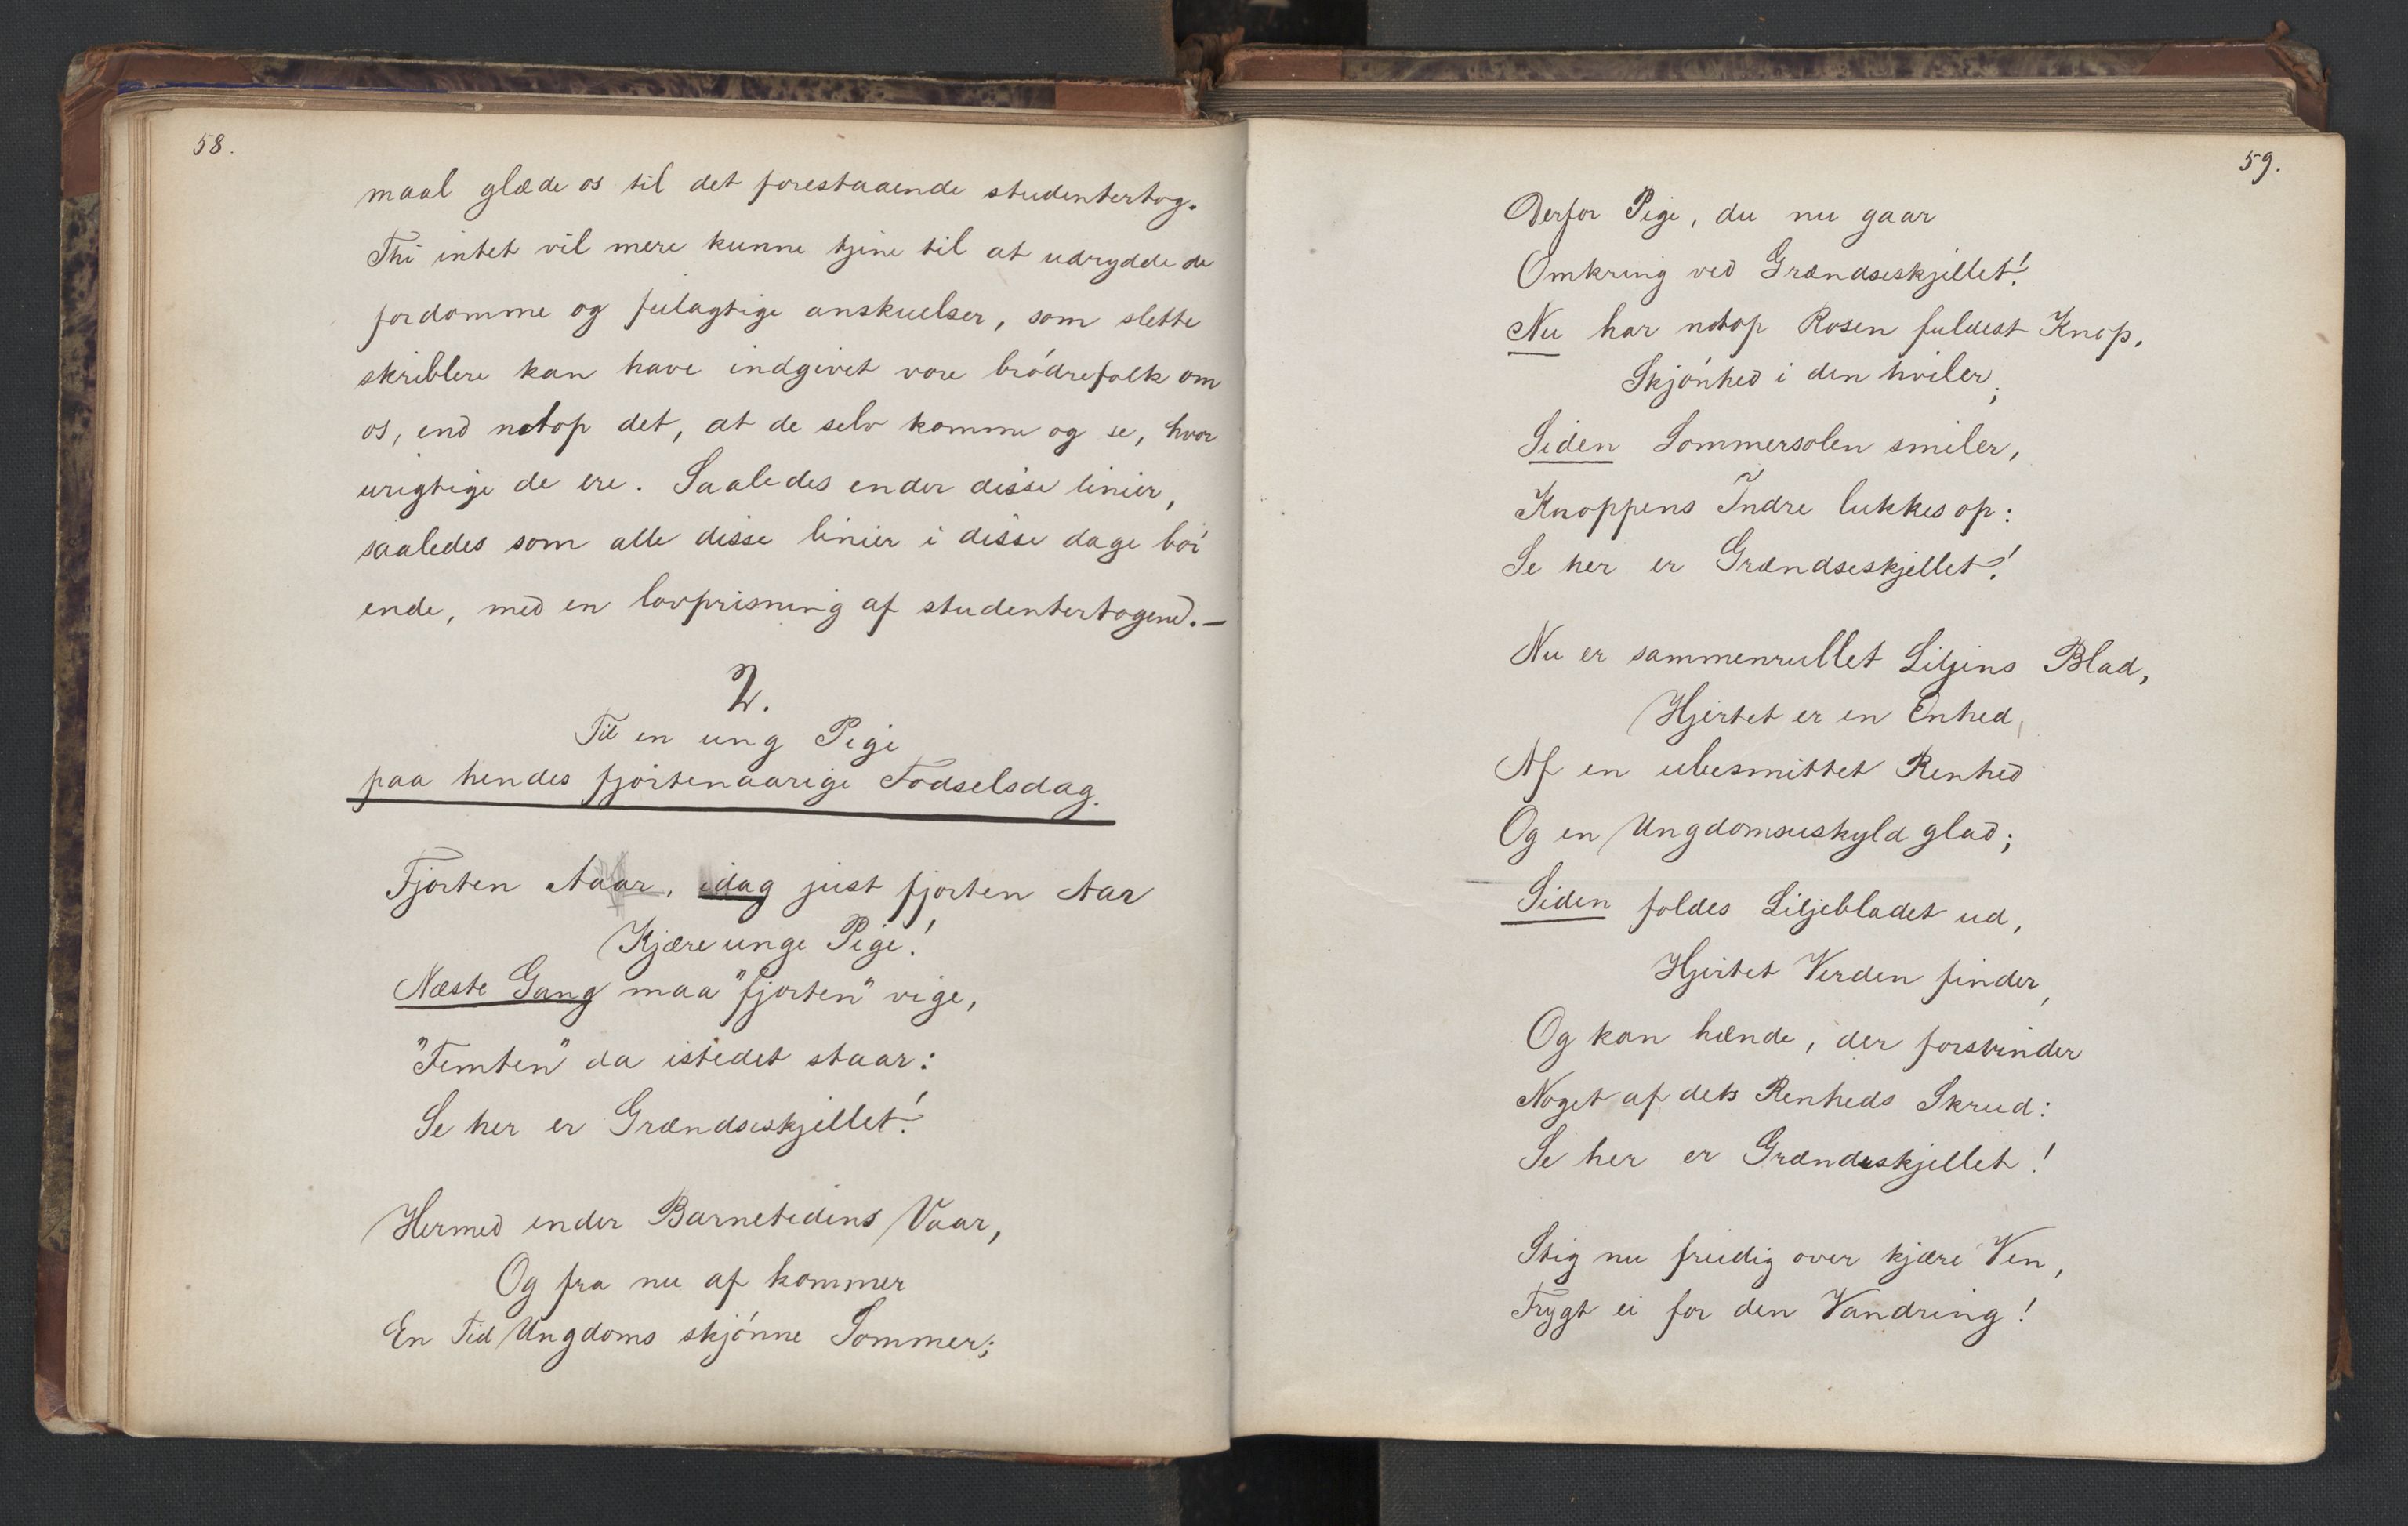 58.
maal glæde os til det forestaaende studentertog.
Thi intet vil mere kunne tjene til at udrydde de
fordomme og feilagtige anskuelser, som slette
skriblere kan have indgivet vore brødrefolk om
os, end netop det, at de selv komme og se, hvor
urigtige de ere. Saaledes ender disse linier,
saaledes som alle disse linier i disse dage bør
ende, med en lovprisning af studentertogene. —
2.
Til en ung Pige
paa hendes fjortenaarige Fødselsdag.
Fjorten Aaar, idag just fjorten Aar
Kjære unge Pige!
Næste Gang maa "fjorten" vige,
"Femten" da istedet staar:
Se her er Grændseskjellet!
Hermed ender Barnetidens Vaar,
Og fra nu af kommer
En Tid Ungdoms skjønne Sommer;
59.
Derfor Pige, du nu gaar
Omkring ved Grændseskjellet!
Nu har netop Rosen fuldest Knop,
Skjønhed i den hviler;
Siden Sommersolen smiler,
Knoppens Indre lukkes op:
Se her er Grændseskjellet!
Nu er sammenrullet Liljens Blad,
Hjertet er en Enhed,
Af en ubesmittet Renhed
Og en Ungdomsuskyld glad;
Siden foldes Liljebladet ud,
Hjertet Verden finder,
Og kan hænde, der forsvinder
Noget af dets Renheds Skrud:
Se her er Grændseskjellet!
Stig nu freidig over kjære Ven,
Frygt ei for den Vandring!